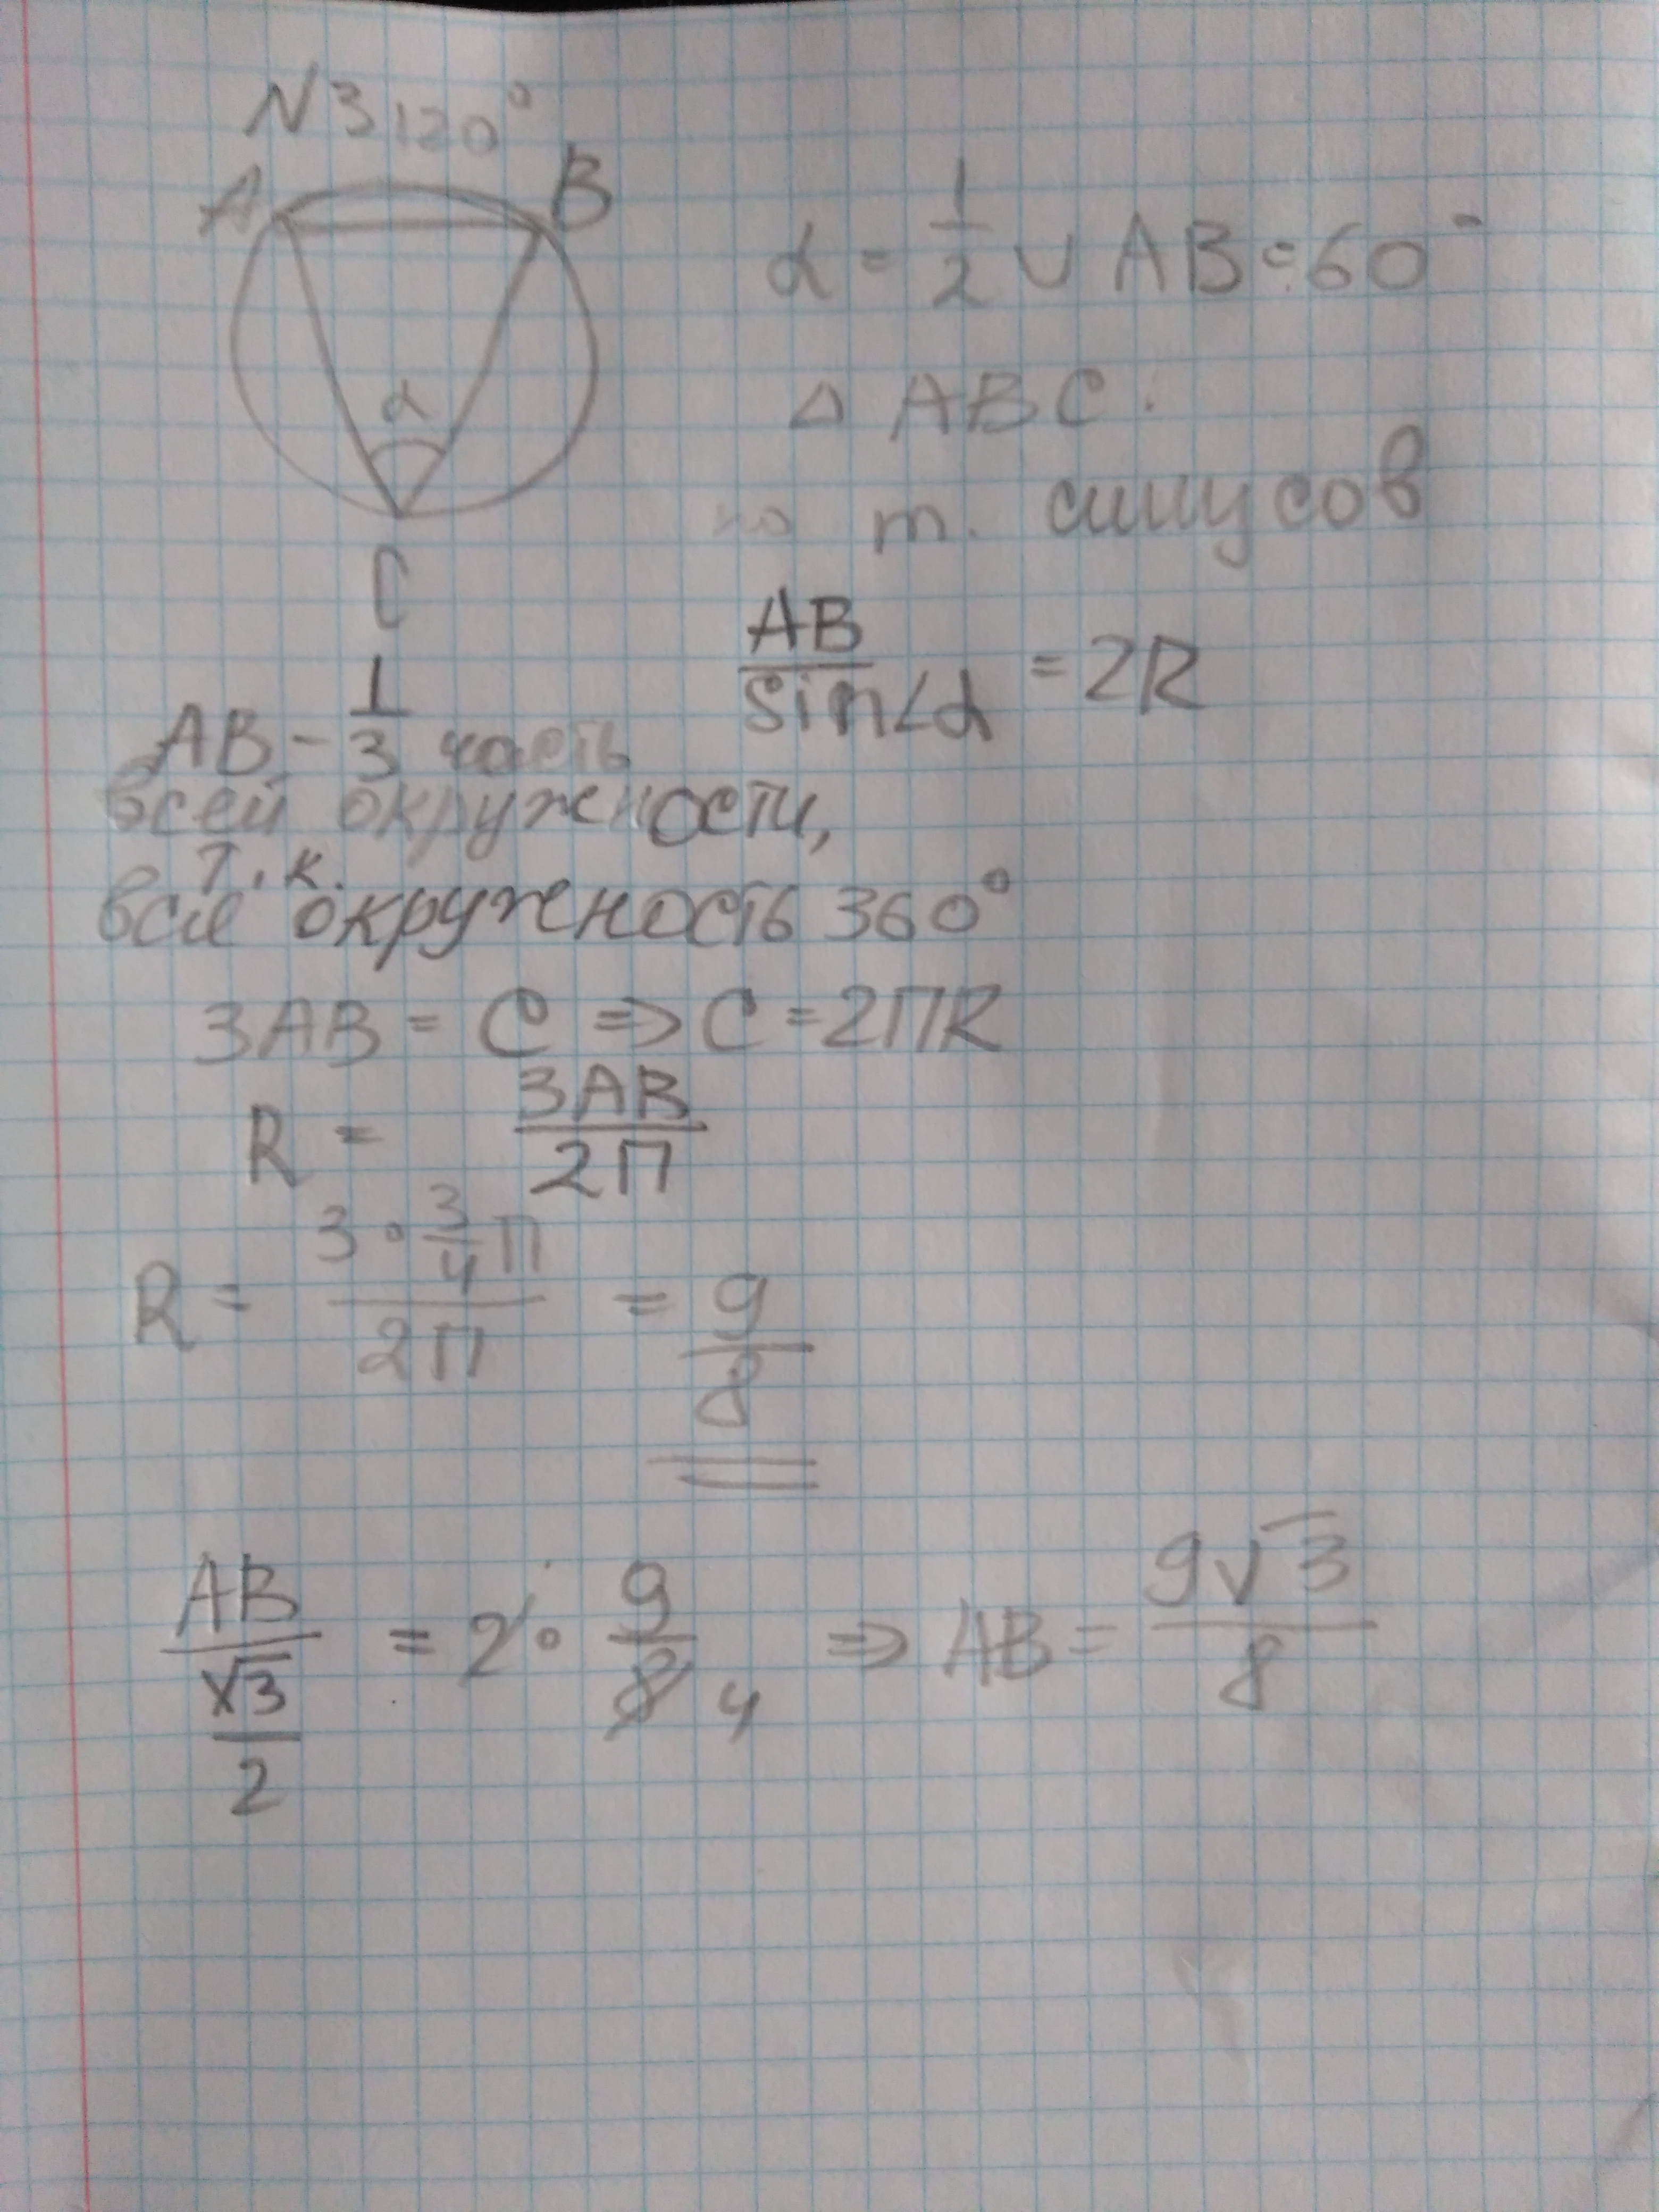 N3 120°
A B
α = 1/2 ◡ AB = 60°
α
△ ABC.
по т. синусов
C
AB/sin∠α = 2R
AB - 1/3 часть
всей окружности,
т.к.
вся окружность 360°
3AB = C ⇒ C = 2ПR
R = 3AB/2П
R = (3·3/4 П)/2П = 9/8
AB/(√3/2) = 2·9/8 4 ⇒ AB = 9√3/8